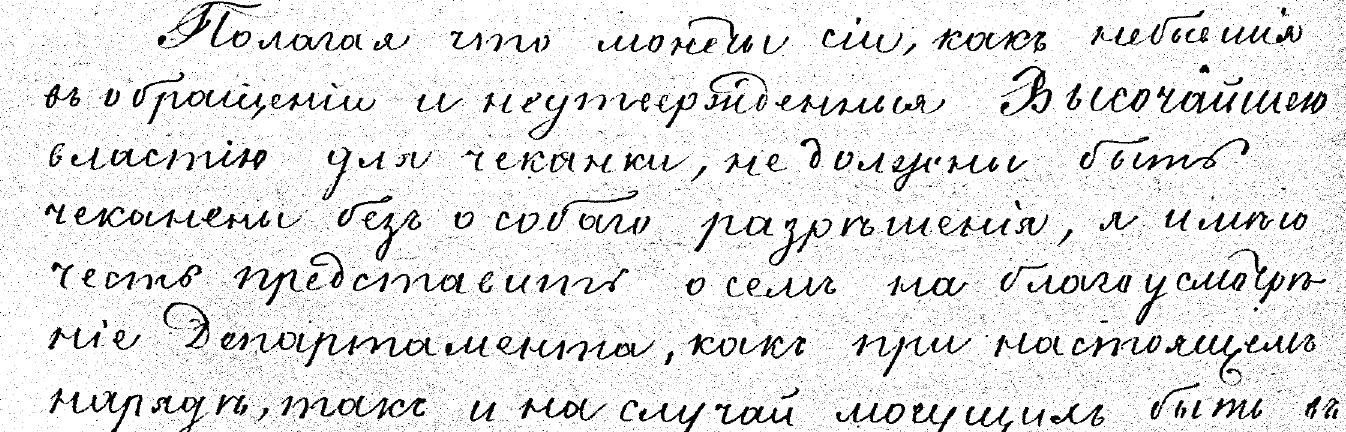 Полагая что монеты сіи, какъ небывшія
въ обращеніи и неутвержденныя Высочайшею
властію для чеканки, не должны быть
чеканены безъ особаго разрѣшенія, я имѣю
честь представить о семъ на благоусмотрѣ-
ніе Департамента, какъ при настоящемъ
нарядѣ, такъ и на случай могущихъ быть въ